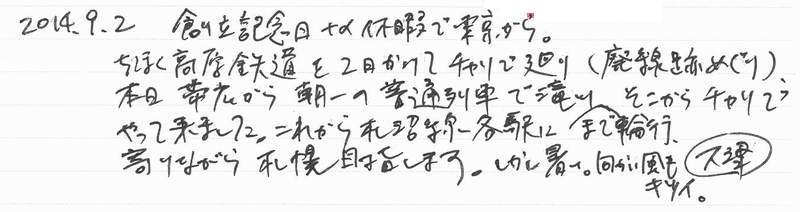 2014.9.2 創立記念日+α休暇で東京から。
ちほく高原鉄道を2日かけてチャリで廻り(廃線跡めぐり)
本日 帯広から朝一の普通列車で滝川 そこからチャリで
やって来ました。これから札沼線各駅に まで輪行、
寄りながら札幌目指します。しかし暑い。向かい風も
キツイ。